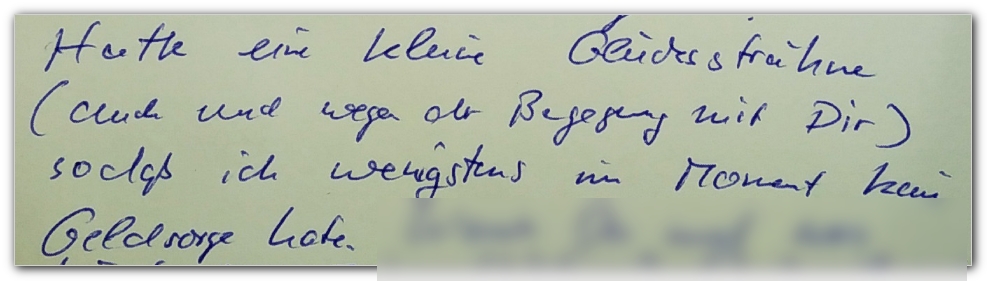 Hatte eine kleine Glückssträhne
(auch und wegen der Begegnung mit Dir)
sodaß ich wenigstens im Moment kein
Geldsorge habe.